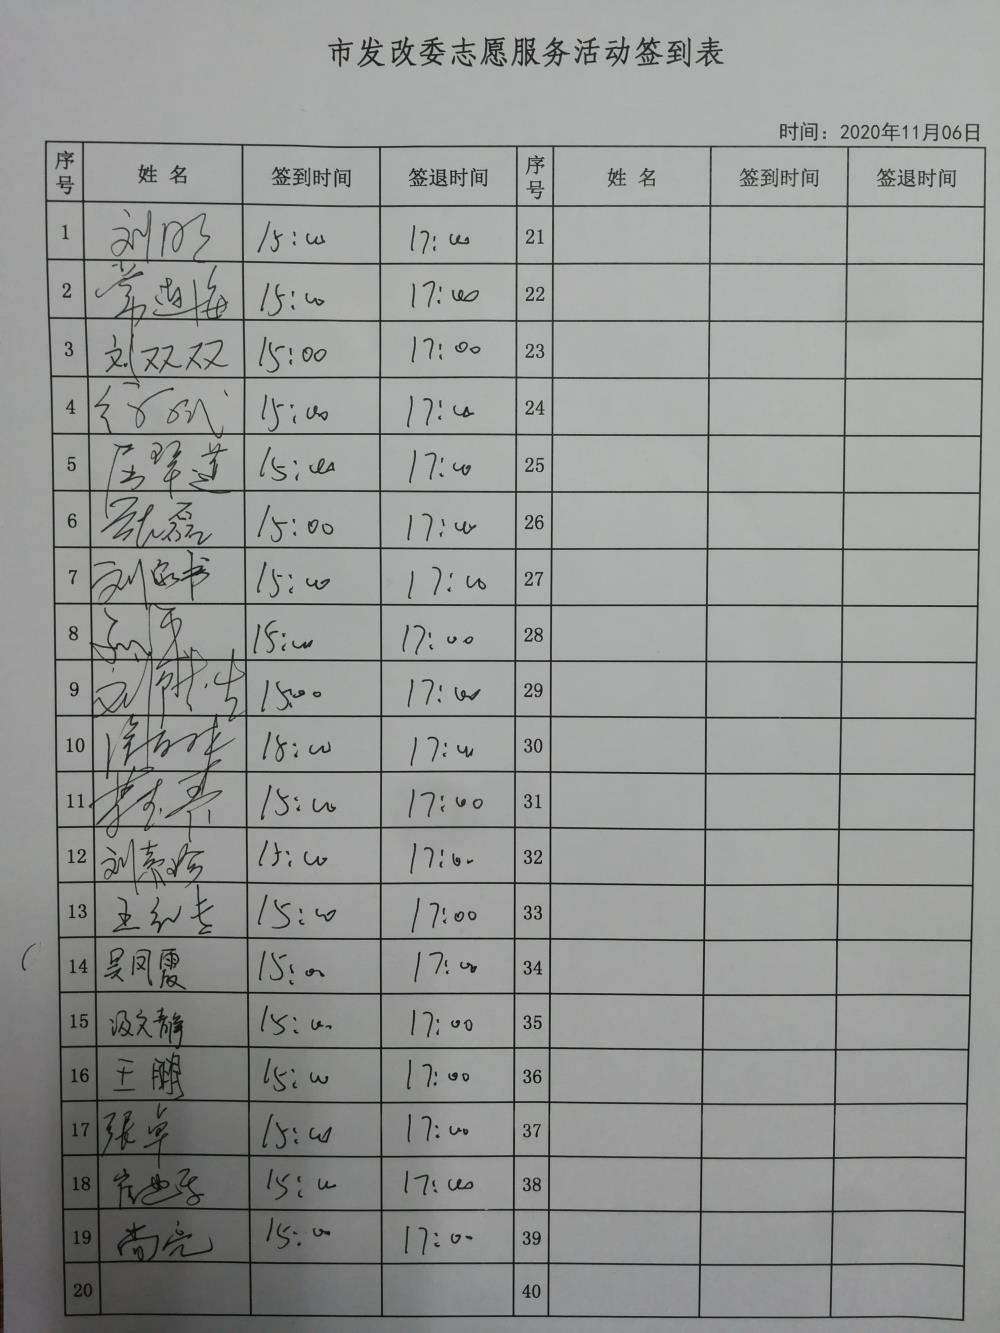 市发改委志愿服务活动签到表
时间：2020年11月06日
序号 姓 名 签到时间 签退时间 序号 姓 名 签到时间 签退时间
1 刘明 15:00 17:00 21
2 常连海 15:00 17:00 22
3 刘双双 15:00 17:00 23
4 15:00 17:00 24
5 15:00 17:00 25
6 磊 15:00 17:00 26
7 刘 书 15:00 17:00 27
8 15:00 17:00 28
9 刘 15:00 17:00 29
10 15:00 17:00 30
11 15:00 17:00 31
12 刘 15:00 17:00 32
13 王 15:00 17:00 33
14 吴凤霞 15:00 17:00 34
15 汲文静 15:00 17:00 35
16 王鹏 15:00 17:00 36
17 张卓 15:00 17:00 37
18 15:00 17:00 38
19 尚亮 15:00 17:00 39
20 40